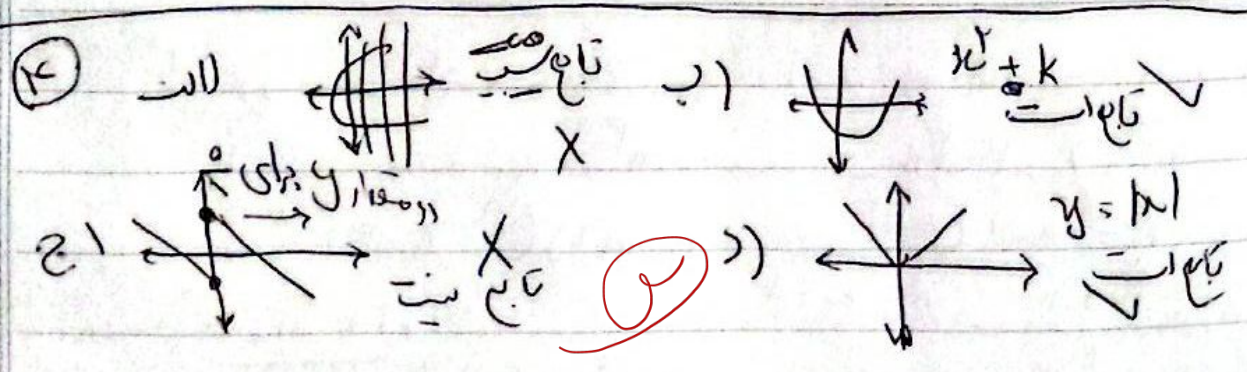 ۴ الف تابع نیست X ب) x² + k تابع است ✓
ج) دو مقدار y برای ۰ تابع نیست X د) y = |x| تابع است ✓
۲